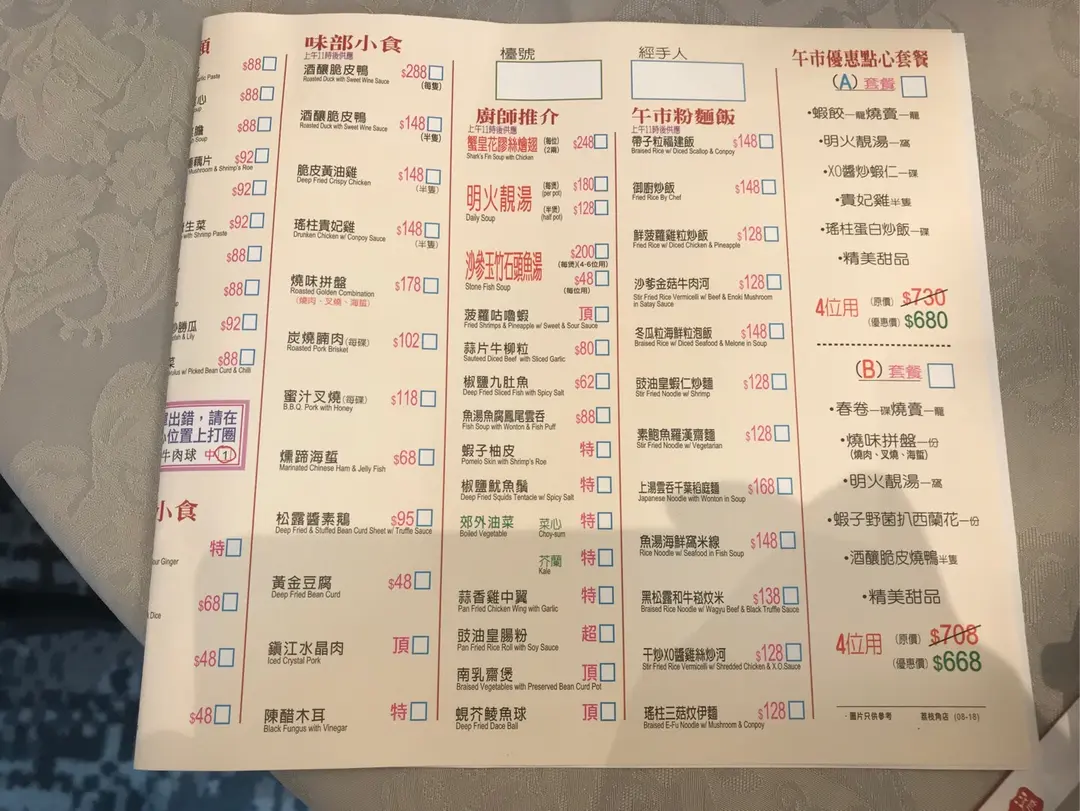 $88
$88
$88
藕片 $92
Mushroom & Shrimp's Roe
$92
生菜 $92
w/ Shrimp Paste
$88
$88
勝瓜 $92
$88
w/ Picked Bean Curd & Chilli
出錯，請在
位置上打圈
牛肉球 中①
小食
特
our Ginger
$68
Dice
$48
$48
味部小食
上午11時後供應
酒釀脆皮鴨 $288
Roasted Duck with Sweet Wine Sauce (每隻)
酒釀脆皮鴨 $148
Roasted Duck with Sweet Wine Sauce (半隻)
脆皮黃油雞 $148
Deep Fried Crispy Chicken (半隻)
瑤柱貴妃雞 $148
Drunken Chicken w/ Conpoy Sauce (半隻)
燒味拼盤 $178
Roasted Golden Combination
(燒肉、叉燒、海蜇)
炭燒腩肉(每碟) $102
Roasted Pork Brisket
蜜汁叉燒(每碟) $118
B.B.Q. Pork with Honey
燻蹄海蜇 $68
Marinated Chinese Ham & Jelly Fish
松露醬素鵝 $95
Deep Fried & Stuffed Bean Curd Sheet w/ Truffle Sauce
黃金豆腐 $48
Deep Fried Bean Curd
鎮江水晶肉 頂
Iced Crystal Pork
陳醋木耳 特
Black Fungus with Vinegar
檯號
廚師推介
上午11時後供應
蟹皇花膠絲燴翅 (每位) (2兩) $248
Shark's Fin Soup with Chicken
明火靚湯 (每煲) (per pot) $180
Daily Soup (半煲) (half pot) $128
沙參玉竹石頭魚湯 $200
(每煲)(4-6位用)
$48
Stone Fish Soup (每位用)
菠蘿咕嚕蝦 頂
Fried Shrimps & Pineapple w/ Sweet & Sour Sauce
蒜片牛柳粒 $80
Sauteed Diced Beef with Sliced Garlic
椒鹽九肚魚 $62
Deep Fried Sliced Fish with Spicy Salt
魚湯魚腐鳳尾雲吞 $88
Fish Soup with Wonton & Fish Puff
蝦子柚皮 特
Pomelo Skin with Shrimp's Roe
椒鹽魷魚鬚 特
Deep Fried Squids Tentacle w/ Spicy Salt
郊外油菜 菜心 特
Boiled Vegetable Choy-sum
芥蘭 特
Kale
蒜香雞中翼 特
Pan Fried Chicken Wing with Garlic
豉油皇腸粉 超
Pan Fried Rice Roll with Soy Sauce
南乳齋煲 頂
Braised Vegetables with Preserved Bean Curd Pot
蜆芥鯪魚球 頂
Deep Fried Dace Ball
經手人
午市粉麵飯
上午11時後供應
帶子粒福建飯 $148
Braised Rice w/ Diced Scallop & Conpoy
御廚炒飯 $148
Fried Rice By Chef
鮮菠蘿雞粒炒飯 $128
Fried Rice w/ Diced Chicken & Pineapple
沙爹金菇牛肉河 $128
Stir Fried Rice Vermicelli w/ Beef & Enoki Mushroom
in Satay Sauce
冬瓜粒海鮮粒泡飯 $148
Braised Rice w/ Diced Seafood & Melone in Soup
豉油皇蝦仁炒麵 $128
Stir Fried Noodle w/ Shrimp
素鮑魚羅漢齋麵 $128
Stir Fried Noodle w/ Vegetarian
上湯雲吞千葉稻庭麵 $168
Japanese Noodle with Wonton in Soup
魚湯海鮮窩米線 $148
Rice Noodle w/ Seafood in Fish Soup
黑松露和牛崧炆米 $138
Braised Rice Noodle w/ Wagyu Beef & Black Truffle Sauce
干炒XO醬雞絲炒河 $128
Stir Fried Rice Vermicelli w/ Shredded Chicken & X.O.Sauce
瑤柱三菇炆伊麵 $128
Braised E-Fu Noodle w/ Mushroom & Conpoy
午市優惠點心套餐
(A) 套餐
•蝦餃一籠燒賣一籠
•明火靚湯一窩
•XO醬炒蝦仁一碟
•貴妃雞半隻
•瑤柱蛋白炒飯一碟
•精美甜品
4位用 (原價) $730
(優惠價) $680
(B) 套餐
•春卷一碟燒賣一籠
•燒味拼盤一份
(燒肉、叉燒、海蜇)
•明火靚湯一窩
•蝦子野菌扒西蘭花一份
•酒釀脆皮燒鴨半隻
•精美甜品
4位用 (原價) $708
(優惠價) $668
圖片只供參考 荔枝角店 (08-18)